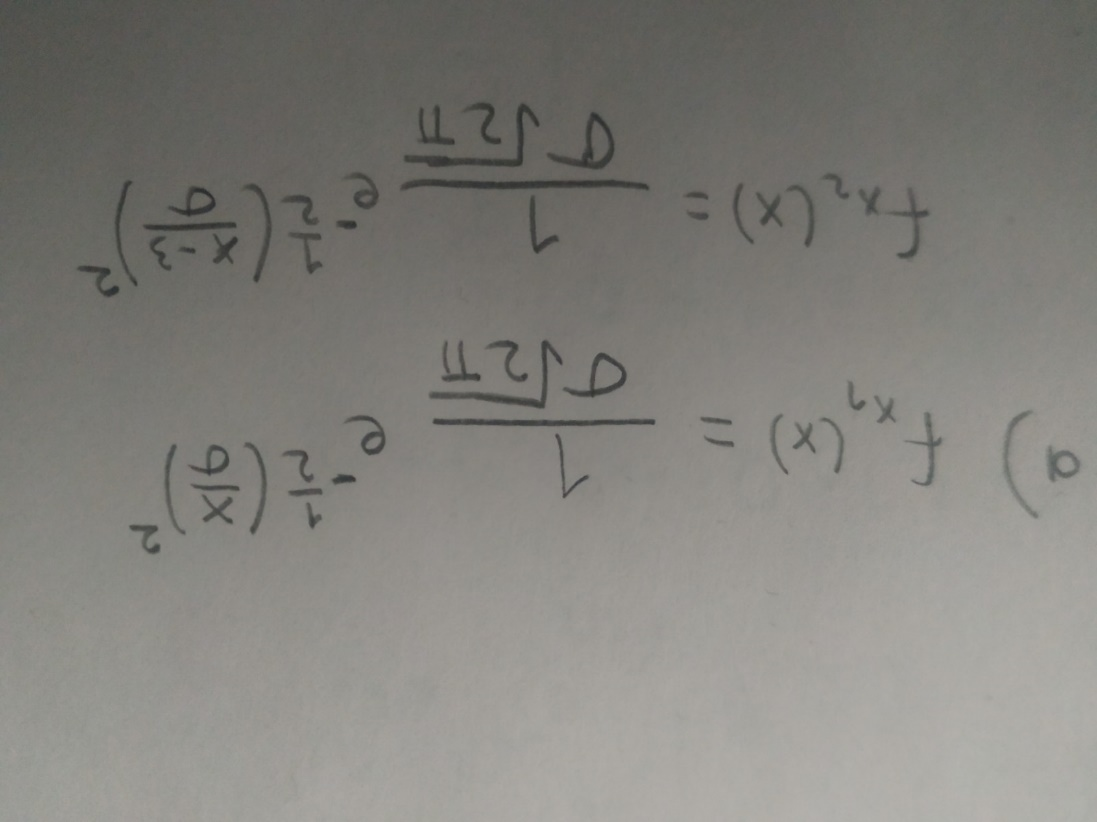 a) f_{x_1}(x) = \frac{1}{\sigma\sqrt{2\pi}} e^{-\frac{1}{2}\left(\frac{x}{\sigma}\right)^2}
f_{x_2}(x) = \frac{1}{\sigma\sqrt{2\pi}} e^{-\frac{1}{2}\left(\frac{x-3}{\sigma}\right)^2}